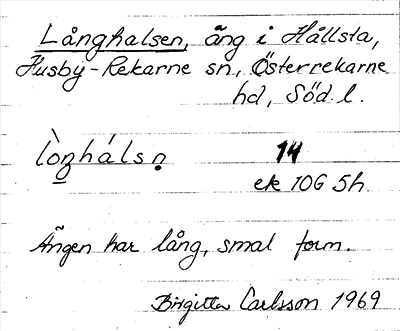 Långhalsen, äng i Hållsta,
Husby-Rekarne sn., Österrekarne
hd, Söd. l.
lòŋháls ṇ 14
ek 10G 5h.
Ängen har lång, smal form.
Birgitta Carlsson 1969